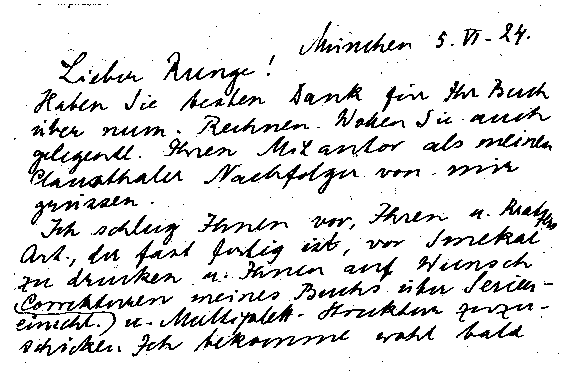 München 5. VI. 24.
Lieber Runge!
Haben Sie besten Dank für Ihr Buch
über num. Rechnen. Wollen Sie auch
gelegentl. Ihren Mitautor als meinen
Clausthaler Nachfolger von mir
grüssen.
Ich schlug Ihnen vor, Ihren u. Kratzers
Art., der fast fertig ist, vor Smekal
zu drucken u. Ihnen auf Wunsch
Correkturen meines Buchs über Serien-
(einschl.) u. Multiplett-Struktur zuzu-
schicken. Ich bekomme wohl bald